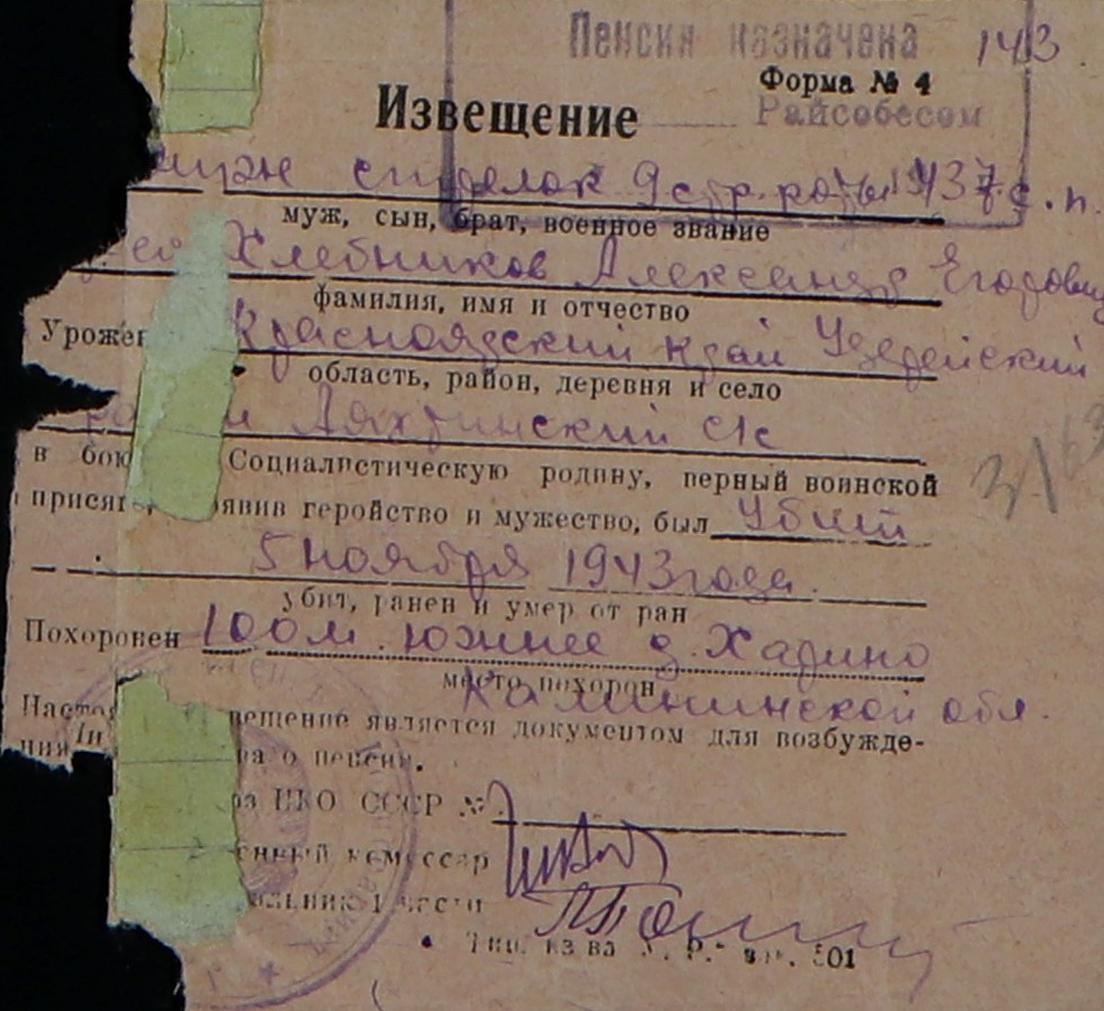 Пенсия назначена 143
Форма № 4
Извещение
Райсобесом
стрелок 9 стр. роты 1437 с.п.
муж, сын, брат, военное звание
Хлебников Александр Егорович
фамилия, имя и отчество
Урожен Красноярский край Удерейский
область, район, деревня и село
Аяхтинский с/с
в бою Социалистическую родину, верный воинской
присяг явив геройство и мужество, был Убит
5 ноября 1943 года.
убит, ранен и умер от ран
Похоронен 100 м. южнее д. Харино
место похорон
Калининской обл.
Насто вещение является документом для возбужде-
ния ва о пенсии.
аз НКО СССР №
енный комиссар
альник 1 части